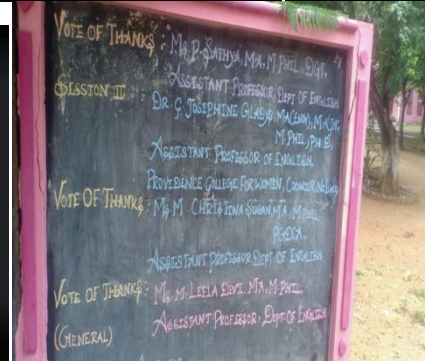 VOTE OF THANKS : Ms P. SATHYA, MA, M PHIL, DGT,
ASSISTANT PROFESSOR, DEPT OF ENGLISH
SESSION II : DR. G. JOSEPHINE GLADYS, MA(ENG), MA
M PHIL, PH D,
ASSISTANT PROFESSOR OF ENGLISH
PROVIDENCE COLLEGE FOR WOMEN, COONOOR, NILGIRIS
VOTE OF THANKS : Ms M. CHRISTINA SUGAN, MA, M PHIL
PGDCA,
ASSISTANT PROFESSOR DEPT OF ENGLISH
VOTE OF THANKS : Ms. M. LEELA DEVI, MA, M.PHIL
(GENERAL) ASSISTANT PROFESSOR, DEPT. OF ENGLISH